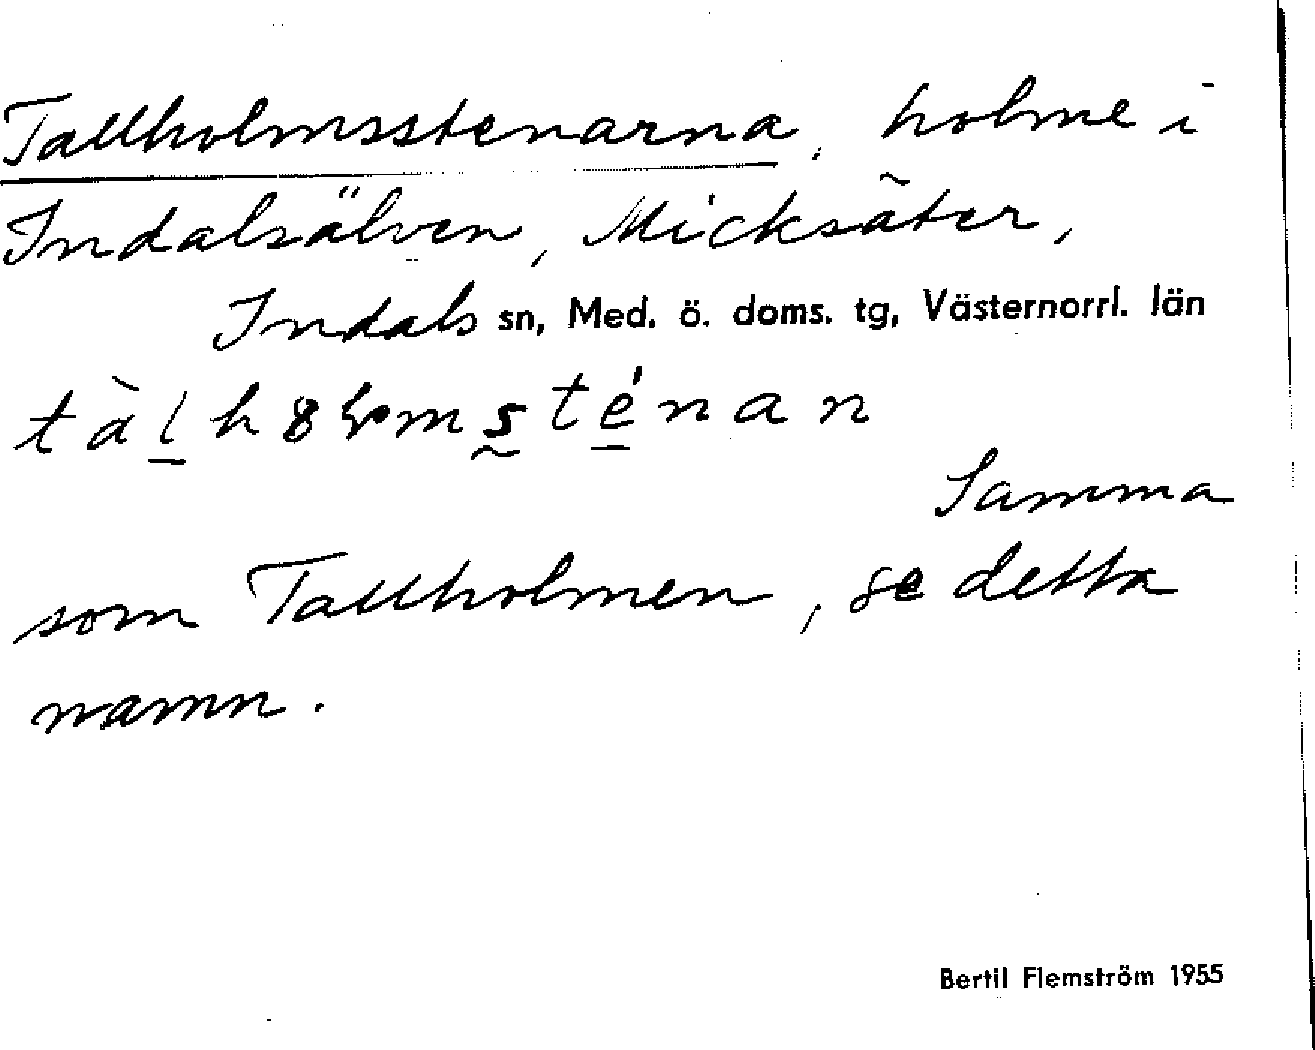 Tallholmsstenarna, holme i
Indalsälven, Micksäter,
Indals sn, Med. ö. doms. tg, Västernorrl. län
Samma
som Tallholmen, se detta
namn.
Bertil Flemström 1955